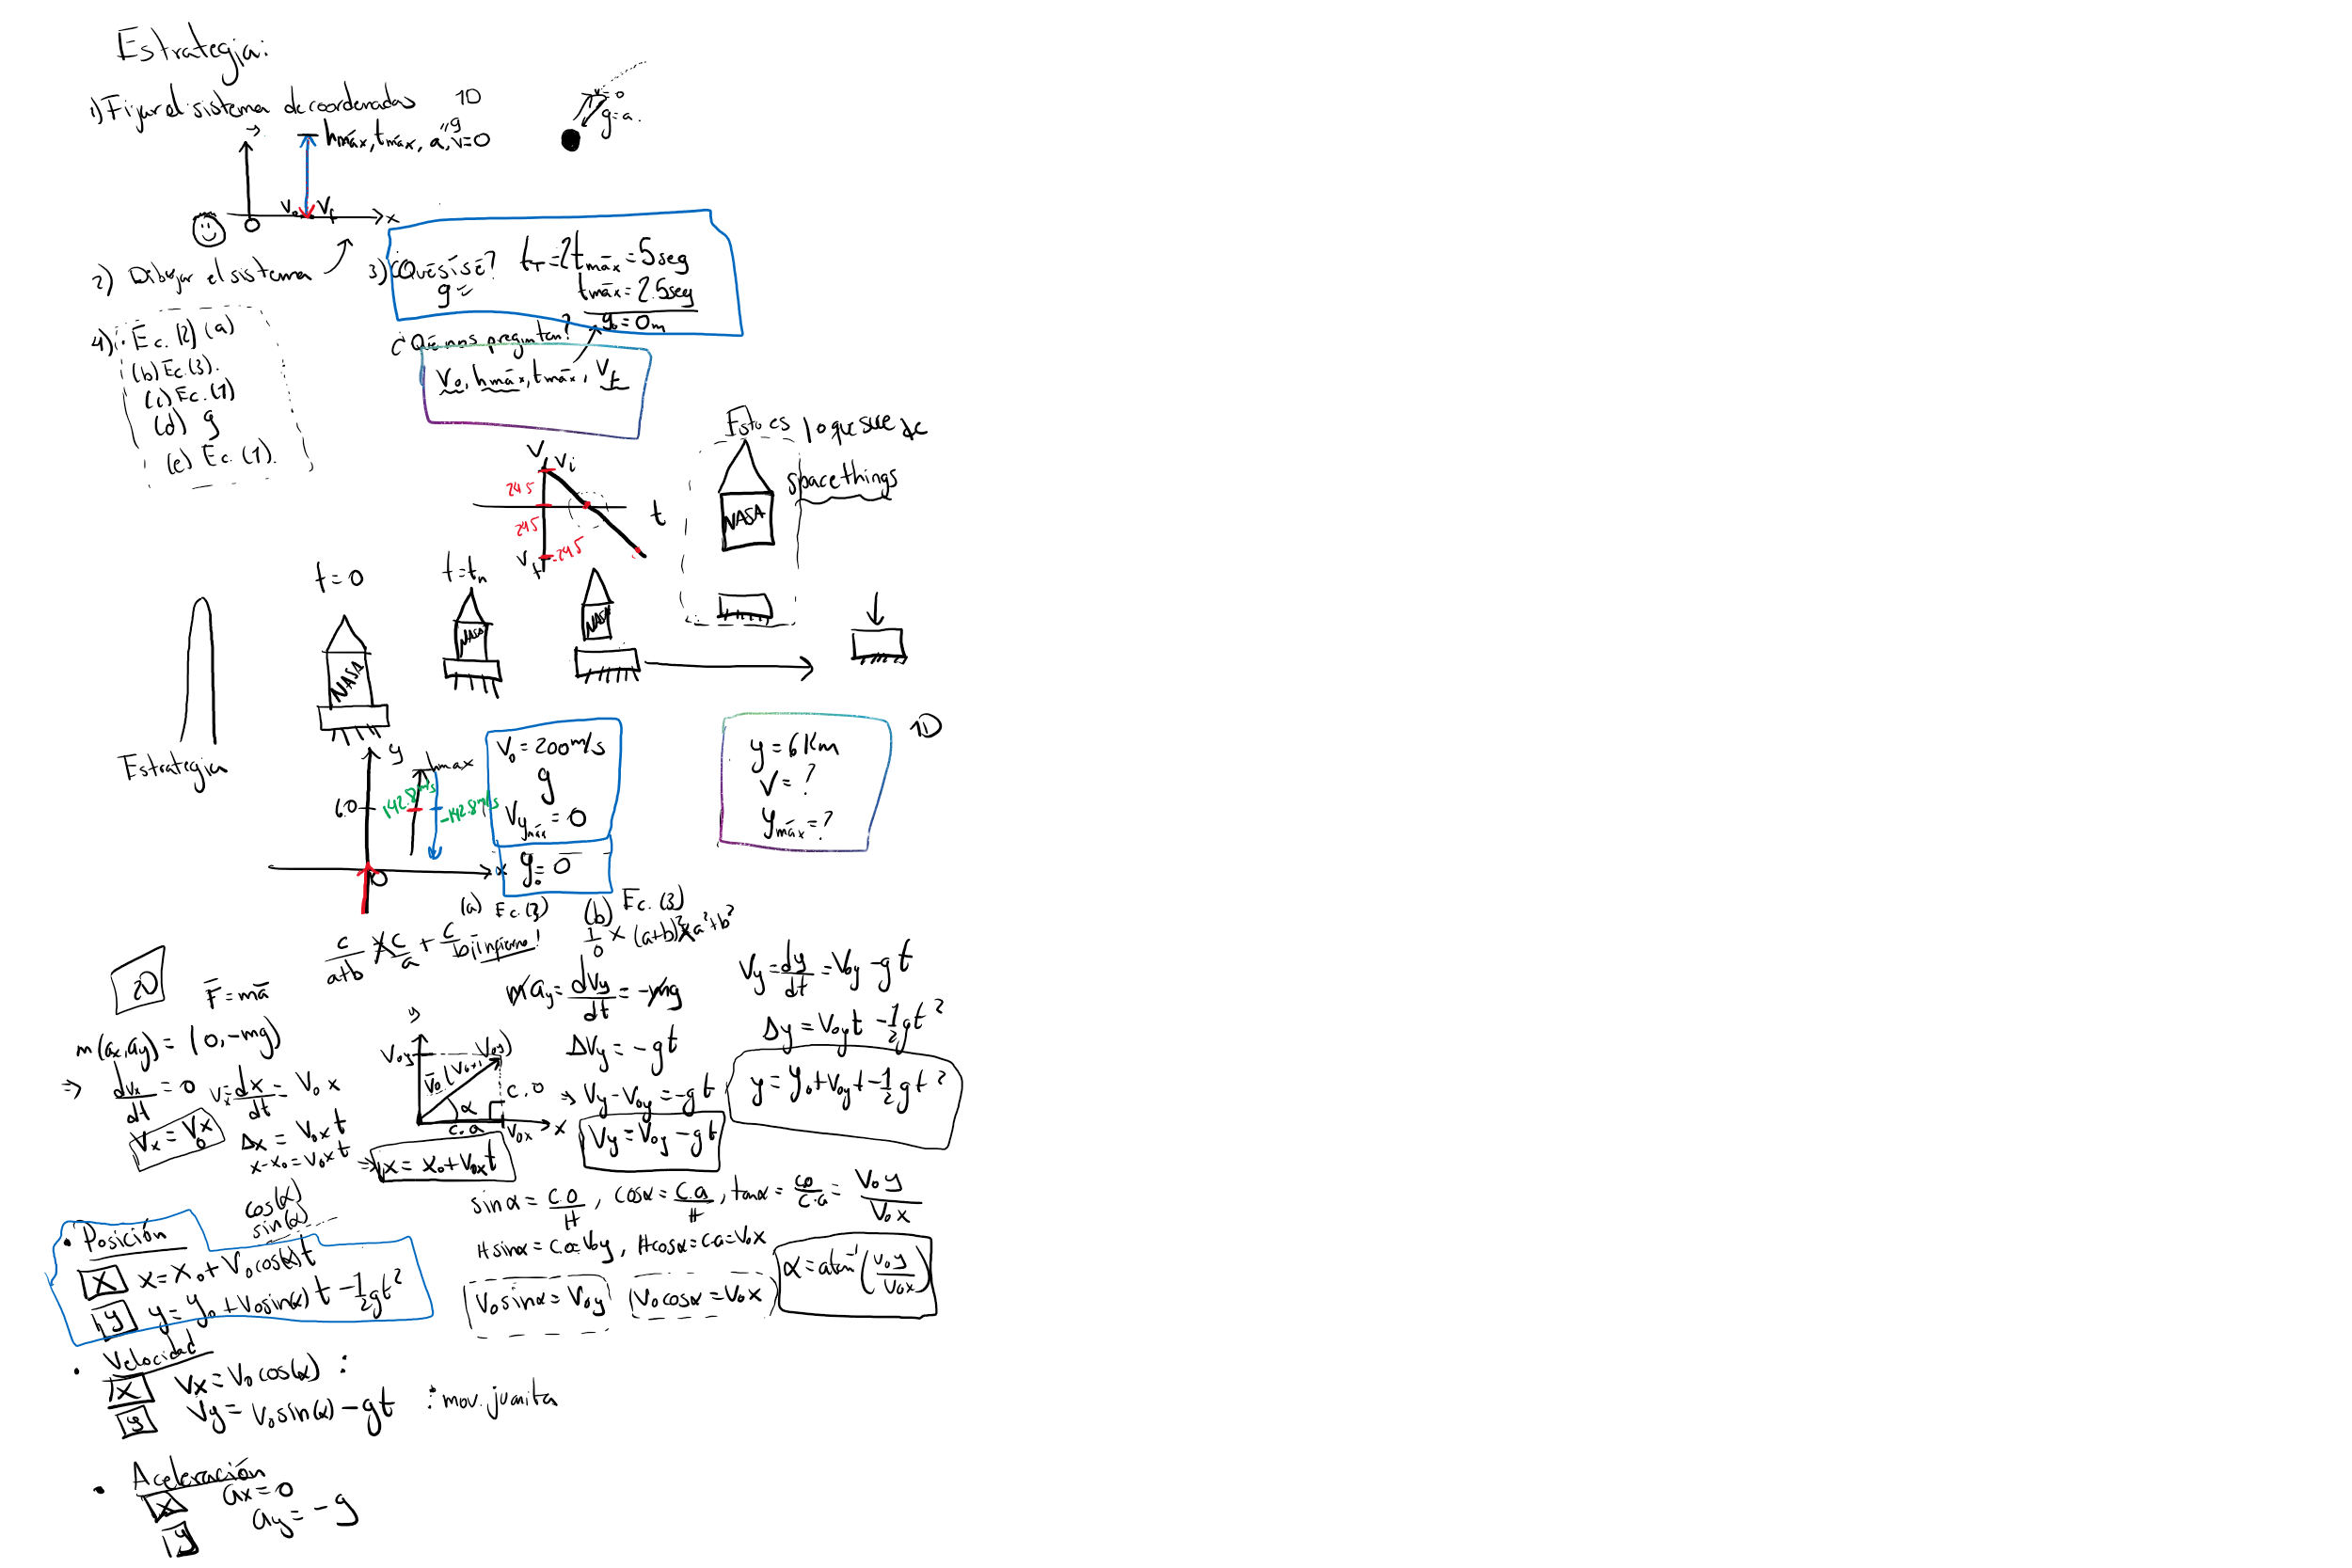 Estrategia:
1) Fijar el sistema de coordenadas 1D
hmáx, tmáx, a=g, v=0
v=0
g=a.
V₀ Vf x
0
2) Dibujar el sistema
3) ¿Qué sí sé? t_T=2tmáx=5seg
g tmáx=2.5seg
y₀=0m
¿Qué nos preguntan?
V₀, hmáx, tmáx, Vf
4) Ec. (2) (a)
(b) Ec. (3).
(c) Ec. (1)
(d) g
(e) Ec. (1).
Esto es lo que sucede
space things
V Vi
24.5
24.5
-24.5
Vf
t
NASA
t=0
t=tn
NASA
NASA
NASA
Estrategia
y
hmax
6.0
142.8m/s
-142.8m/s
x
0
V₀=200m/s
g
Vymáx=0
y₀=0
y=6Km
V=?
ymáx=?
1D
(a) Ec. (3)
(b) Ec. (3)
c/(a+b) ≠ c/a + c/b ¡infierno!
1/0 × (a+b)²≠a²+b²
2D
F̄=mā
m(ax,ay)=(0,-mg)
⇒ dvx/dt=0 Vx=dx/dt=V₀x
Vx=V₀x
Δx=V₀xt
x-x₀=V₀xt ⇒ x=x₀+V₀xt
y
V₀y
V̄₀(V₀x, V₀y)
α
c.o
c.a
V₀x x
may=dVy/dt=-mg
ΔVy=-gt
⇒ Vy-V₀y=-gt
Vy=V₀y-gt
Vy=dy/dt=V₀y-gt
Δy=V₀yt-½gt²
y=y₀+V₀yt-½gt²
sinα=c.o/H, cosα=c.a/H, tanα=co/c.a=V₀y/V₀x
Hsinα=co=V₀y, Hcosα=ca=V₀x
V₀sinα=V₀y V₀cosα=V₀x α=atan⁻¹(V₀y/V₀x)
cos(α)
sin(α)
• Posición
x x=x₀+V₀cos(α)t
y y=y₀+V₀sin(α)t-½gt²
• Velocidad
x Vx=V₀cos(α) :
y Vy=V₀sin(α)-gt : mov. juanita
• Aceleración
x ax=0
y ay=-g